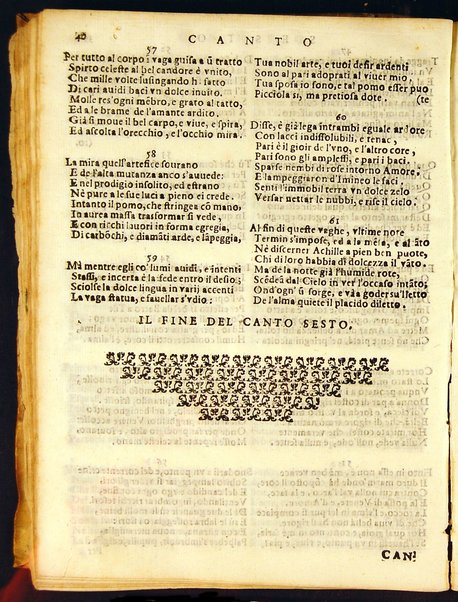 40 CANTO
57
Per tutto al corpo i vaga guisa a ũ tratto
Spirto celeste al bel candore è vnito,
Che mille volte lusingando hà fatto
Di cari auidi baci vn dolce inuito.
Molle res'ogni mẽbro, e grato al tatto,
Ed a le brame de l'amante ardito.
Già si moue il bel carpo, e viue, e spira,
Ed ascolta l'orecchio, e l'occhio mira.
58
La mira quell'artefice sourano
E de Falta mutanza anco s'auuede:
E nel prodigio insolito, ed estrano
Nè pure a le sue lucia pieno ei crede.
Intanto il pomo, che stringea cõ mano,
In aurea massa trasformar si vede,
E con ricchi lauori in forma egregia,
Di carbõchi, e diamãti arde, e lãpeggia,
59
Mà mentre egli co' lumi auidi, e intenti
Stassi, e incerta è la fede entro il desio;
Sciolse la dolce lingua in varij accenti
La vaga statua, e fauellar s'vdio:
Tua nobil arte, e tuoi desir ardenti
Sono al pari adoprati al viuer mio,
Tua sposa io sono, e tal pomo esser puo
Picciola sì, ma pretiosa dote. (te
60
Disse, e già lega intrambi eguale ardore
Con lacci indissolubili, e tenac,
Pari è il gioir de l'vno, e l'altro core,
Pari sono gli amplessi, e pari i baci.
Sparse nembi di rose intorno Amore,
E lampeggiaron d'Imineo le faci.
Sentì l'immobil terra vn dolce zelo
Versar nettar le nubbi, e rise il cielo.
61
Al fin di queste vaghe, vltime note
Termin s'impose, ed a la mẽsa, e al cãto
Nè discerner Achille a pien ben puote,
Chi di loro habbia di dolcezza il vãto.
Ma de la notte già l'humide rote,
Scẽdeã dal Cielo in ver l'occaso intãto;
Ond'ogn'ũ sorge, e và a goder su'l letto
De l'alma quiete il placido diletto.
IL FINE DEL CANTO SESTO.
CAN-